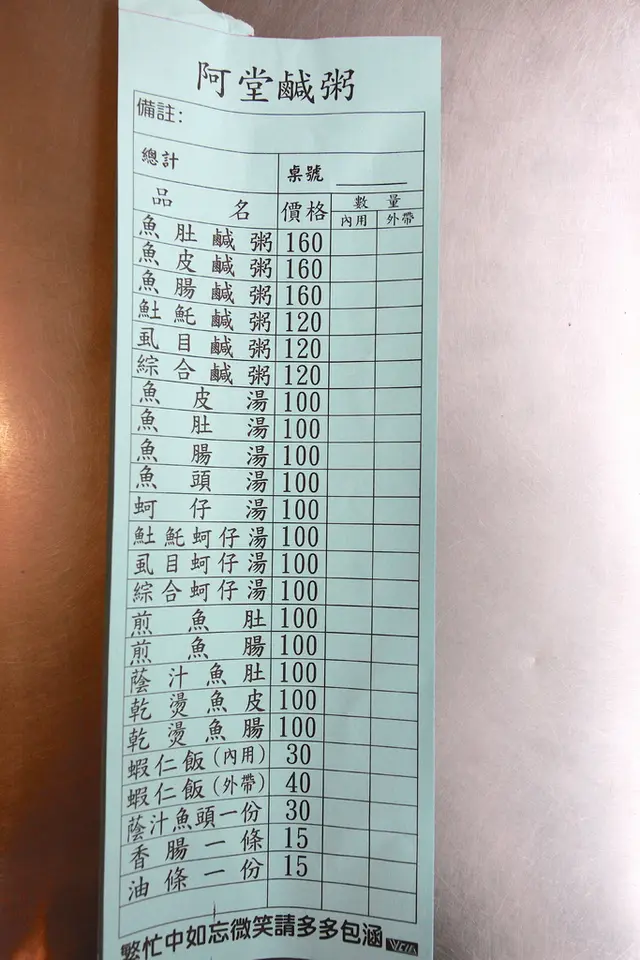 阿堂鹹粥
備註:
總計 桌號
品名 價格 數量
內用 外帶
魚肚鹹粥 160
魚皮鹹粥 160
魚腸鹹粥 160
魠魠鹹粥 120
虱目鹹粥 120
綜合鹹粥 120
魚皮湯 100
魚肚湯 100
魚腸湯 100
魚頭湯 100
蚵仔湯 100
魠魠蚵仔湯 100
虱目蚵仔湯 100
綜合蚵仔湯 100
煎魚肚 100
煎魚腸 100
蔭汁魚肚 100
乾燙魚皮 100
乾燙魚腸 100
蝦仁飯(內用) 30
蝦仁飯(外帶) 40
蔭汁魚頭一份 30
香腸一條 15
油條一份 15
繁忙中如忘微笑請多多包涵